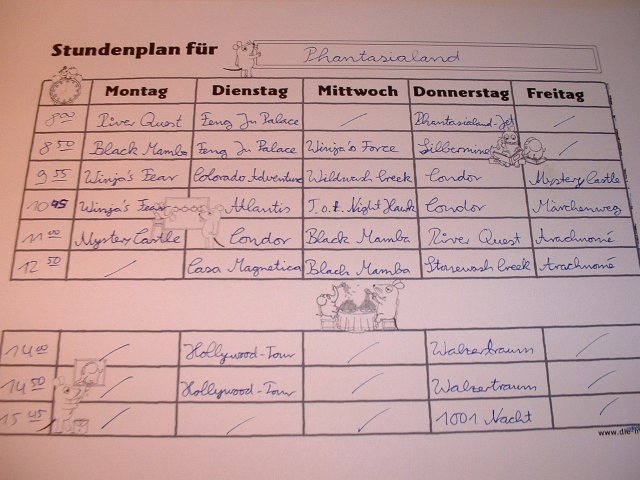 Stundenplan für Phantasialand
Montag Dienstag Mittwoch Donnerstag Freitag
8 00 River Quest Feng Ju Palace / Phantasialand-Jet /
8 50 Black Mamba Feng Ju Palace Winja's Force Silbermine /
9 55 Winja's Fear Colorado Adventure Wildwash Creek Condor Mystery Castle
10 45 Winja's Fear Atlantis T.o.t. Night Hawk Condor Märchenweg
11 00 Mystery Castle Condor Black Mamba River Quest Arachnomé
12 50 / Casa Magnetica Black Mamba Stonewash Creek Arachnomé
14 00 / Hollywood-Tour / Walzertraum /
14 50 / Hollywood-Tour / Walzertraum /
15 45 / / / 1001 Nacht /